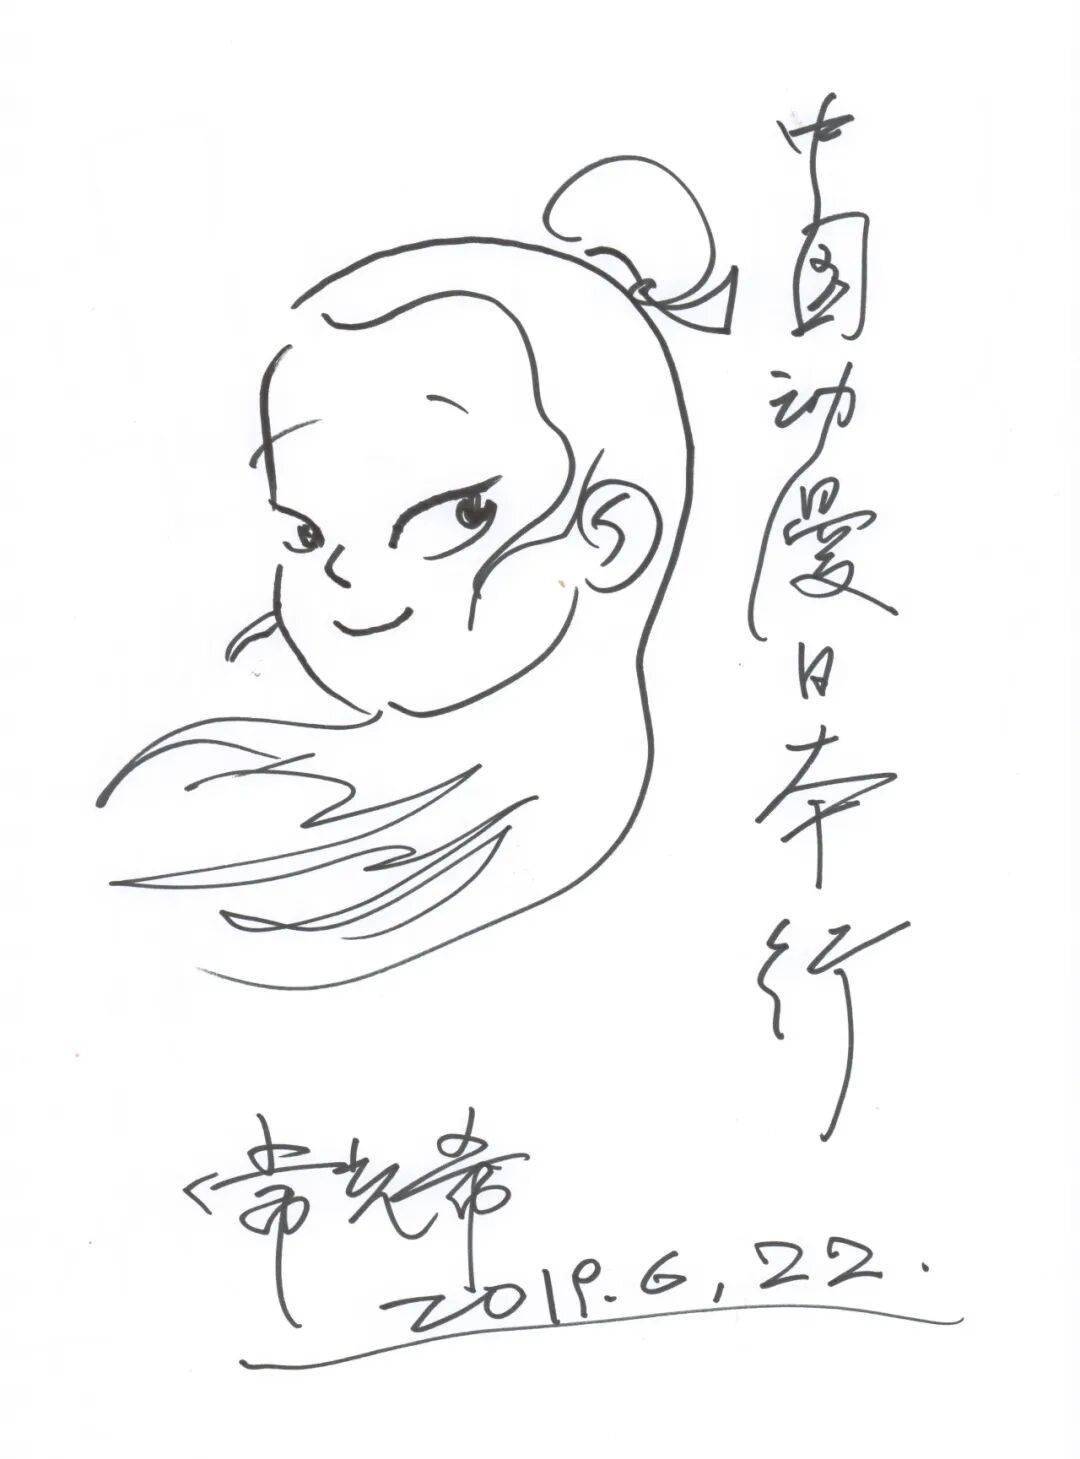 中国动漫日本行
常光希
2019.6.22.